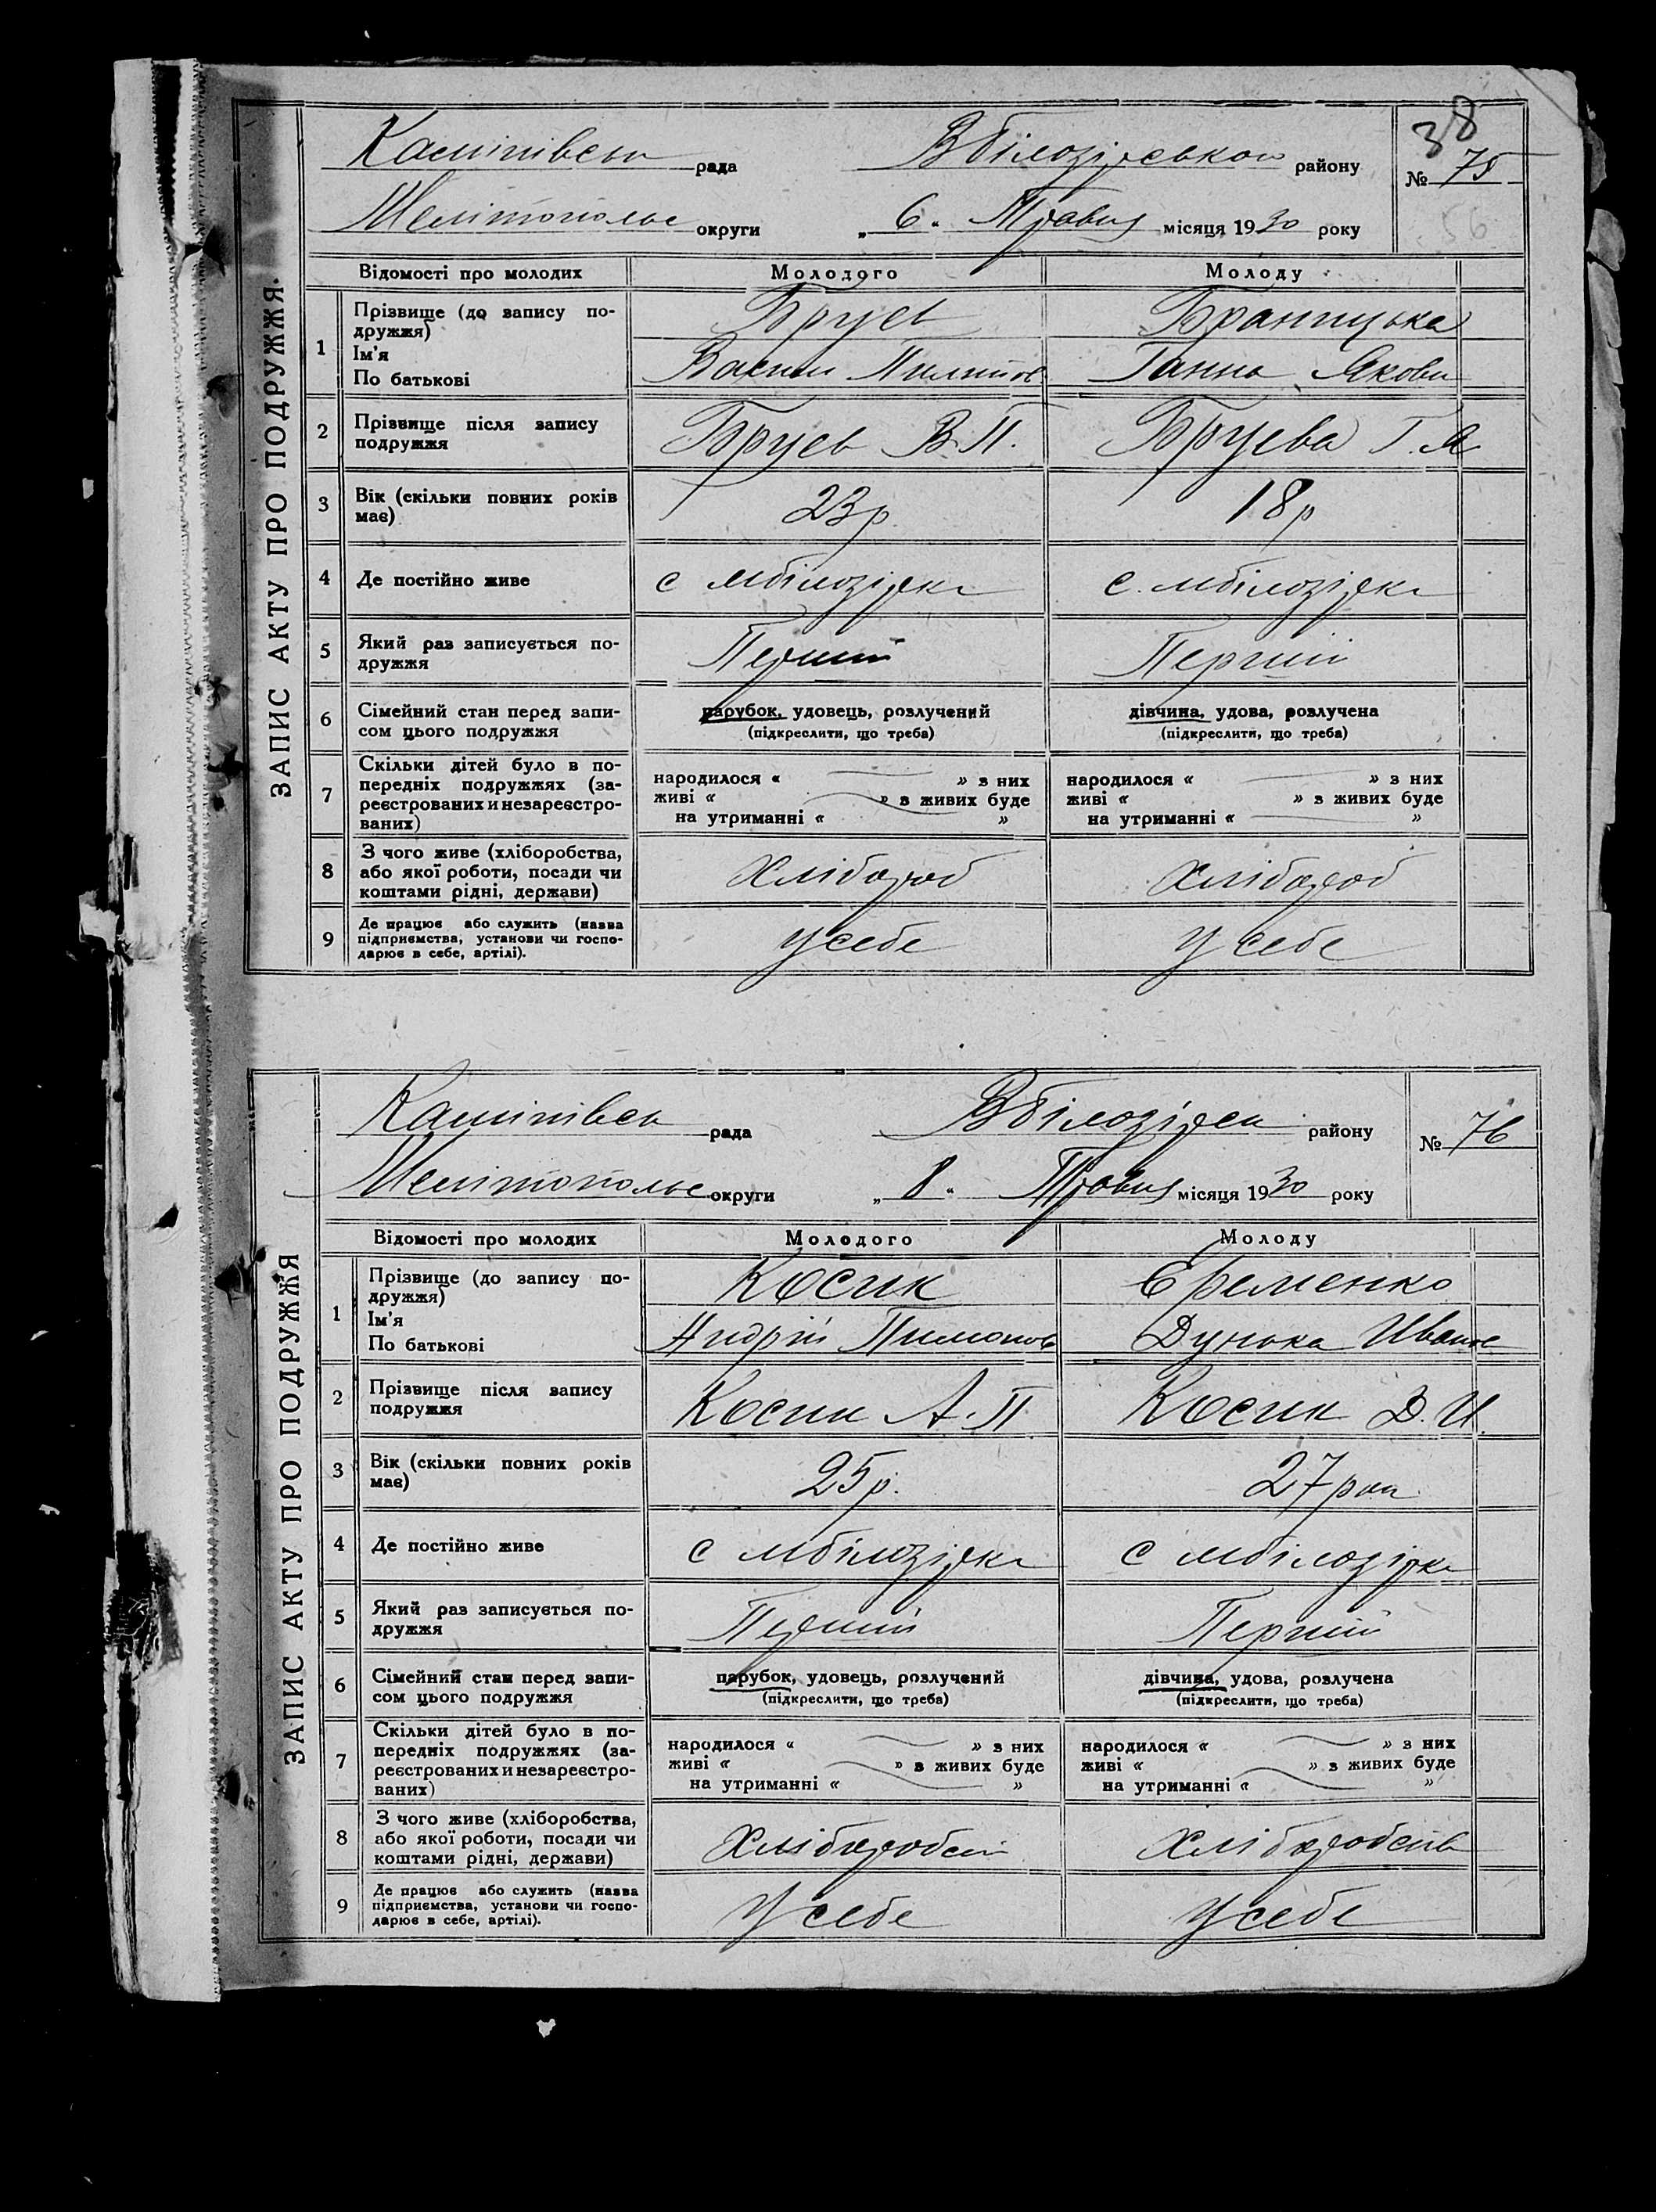 38
рада Вбілозірською району № 75
Мелітопольс округи „ 6 " Травня місяця 1930 року
56
ЗАПИС АКТУ ПРО ПОДРУЖЖЯ.
Відомості про молодих Молодого Молоду
1 Прізвище (до запису по-
дружжя) Бруєв Браницька
Ім'я
По батькові Василь Пилипов Ганна Якови
2 Прізвище після запису
подружжя Бруєв В.П. Бруєва Г.Я
3 Вік (скільки повних років
має) 23р 18р
4 Де постійно живе с мбілозірка с. мбілозірка
5 Який раз записується по-
дружжя Перший Перший
6 Сімейний стан перед запи-
сом цього подружжя парубок, удовець, розлучений дівчина, удова, розлучена
(підкреслити, що треба) (підкреслити, що треба)
7 Скільки дітей було в по-
передніх подружжях (за-
реєстрованих и незареєстро-
ваних)
народилося « » з них народилося « » з них
живі « » з живих буде живі « » з живих буде
на утриманні « » на утриманні « »
8 З чого живе (хліборобства,
або якої роботи, посади чи
коштами рідні, держави) Хлібороб Хлібороб
9 Де працює або служить (назва
підприємства, установи чи госпо-
дарює в себе, артілі). У себе У себе
рада Вбілозірськ району № 76
Мелітопольс округи „ 8 " Травня місяця 1930 року
ЗАПИС АКТУ ПРО ПОДРУЖЖЯ
Відомості про молодих Молодого Молоду
1 Прізвище (до запису по-
дружжя) Косик Єременко
Ім'я
По батькові Андрій Пимонов Дунька Иванов
2 Прізвище після запису
подружжя Косик А.П Косик Д.И.
3 Вік (скільки повних років
має) 25р. 27рок
4 Де постійно живе с мбілозірка с мбілозірка
5 Який раз записується по-
дружжя Перший Перший
6 Сімейний стан перед запи-
сом цього подружжя парубок, удовець, розлучений дівчина, удова, розлучена
(підкреслити, що треба) (підкреслити, що треба)
7 Скільки дітей було в по-
передніх подружжях (за-
реєстрованих и незареєстро-
ваних)
народилося « » з них народилося « » з них
живі « » з живих буде живі « » з живих буде
на утриманні « » на утриманні « »
8 З чого живе (хліборобства,
або якої роботи, посади чи
коштами рідні, держави) Хліборобст Хліборобств
9 Де працює або служить (назва
підприємства, установи чи госпо-
дарює в себе, артілі). У себе У себе